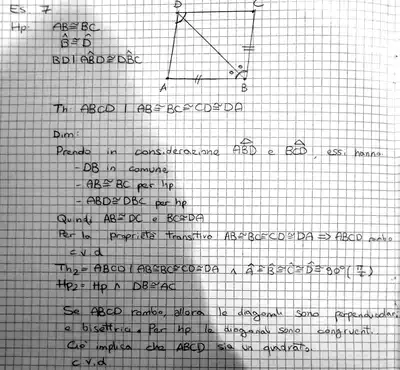 Es. 7
Hp: AB≅BC
B̂≅D̂
BD | AB̂D≅DB̂C
D C
A B
Th: ABCD | AB≅BC≅CD≅DA
Dim:
Prendo in considerazione ABD e BCD, essi hanno
- DB in comune
- AB≅BC per hp
- ABD≅DBC per hp
Quindi AB≅DC e BC≅DA
Per la proprietà transitiva AB≅BC≅CD≅DA ⇒ ABCD rombo
c.v.d
Th₂ = ABCD | AB≅BC≅CD≅DA ∧ Â≅B̂≅Ĉ≅D̂≅90° (π/2)
Hp₂ = Hp ∧ DB≅AC
Se ABCD rombo, allora le diagonali sono perpendicolari
e bisettrici. Per hp le diagonali sono congruenti.
Ciò implica che ABCD sia un quadrato.
c.v.d